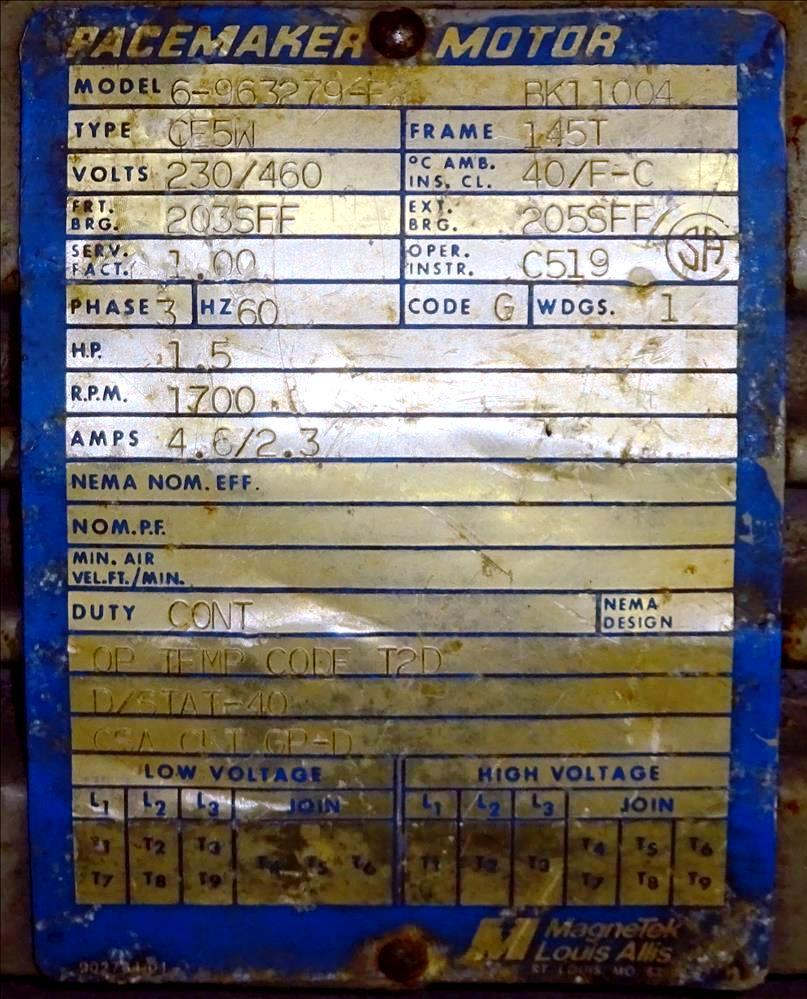 PACEMAKER MOTOR
MODEL 6-963279 BK11004
TYPE CE5W FRAME 145T
VOLTS 230/460 °C AMB. INS. CL. 40/F-C
FRT. BRG. 203SFF EXT. BRG. 205SFF
SERV. FACT. 1.00 OPER. INSTR. C519 SA
PHASE 3 HZ 60 CODE G WDGS. 1
H.P. 1.5
R.P.M. 1700
AMPS 4.6/2.3
NEMA NOM. EFF.
NOM. P.F.
MIN. AIR
VEL.FT./MIN.
DUTY CONT NEMA DESIGN
OP TEMP CODE T2D
D/STAT-40
CSA GP-D
LOW VOLTAGE HIGH VOLTAGE
L1 L2 L3 JOIN L1 L2 L3 JOIN
T1 T2 T3 T4 T5 T6 T1 T2 T3 T4 T5 T6
T7 T8 T9 T7 T8 T9
MagneTek
Louis Allis
ST. LOUIS, MO.